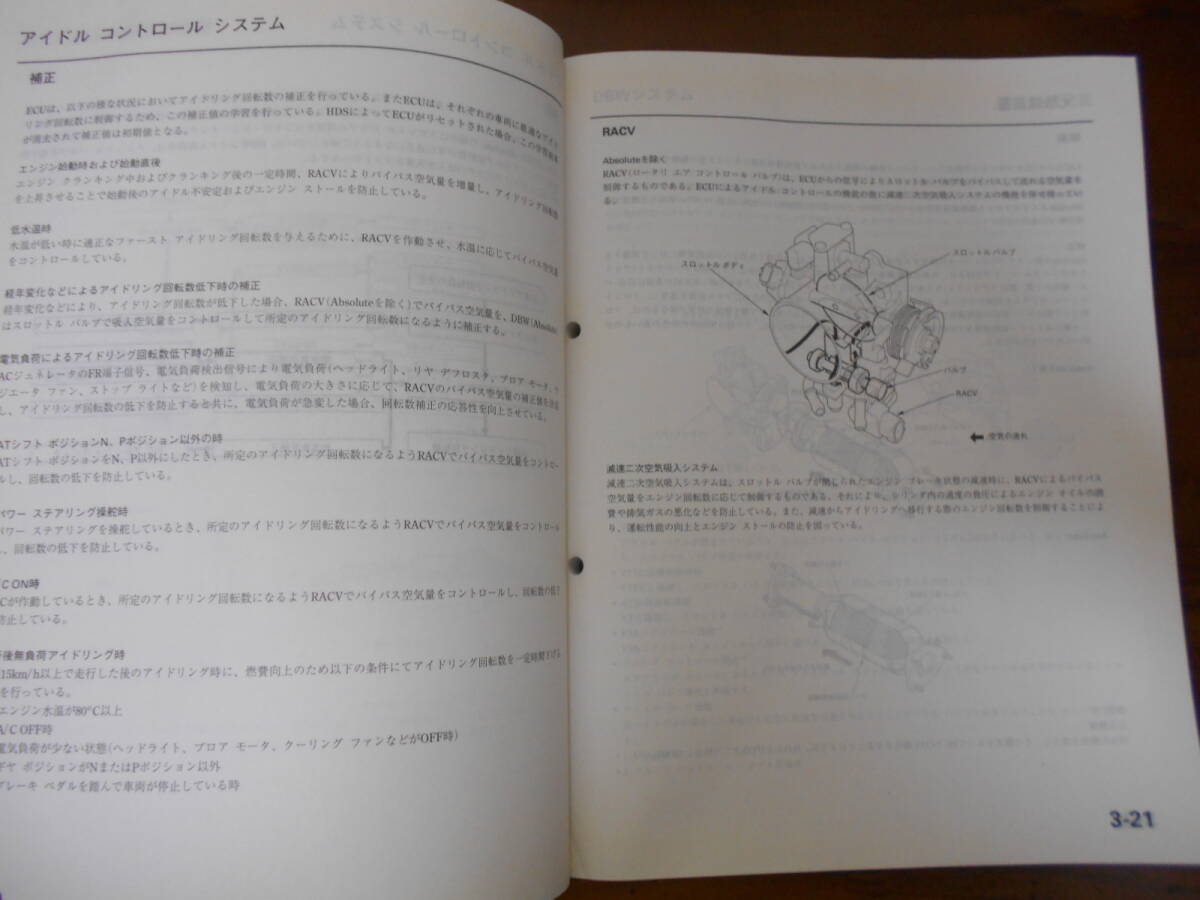 アイドル コントロール システム
補正
ECUは、以下の様な状況においてアイドリング回転数の補正を行っている。またECUは、それぞれの車両に最適なアイド
リング回転数に制御するため、この補正値の学習を行っている。HDSによってECUがリセットされた場合、この学習結果
が消去されて補正値は初期値となる。
エンジン始動時および始動直後
エンジン クランキング中およびクランキング後の一定時間、RACVによりバイパス空気量を増量し、アイドリング回転数
を上昇させることで始動後のアイドル不安定およびエンジン ストールを防止している。
低水温時
水温が低い時に適正なファースト アイドリング回転数を与えるために、RACVを作動させ、水温に応じてバイパス空気量
をコントロールしている。
経年変化などによるアイドリング回転数低下時の補正
経年変化などにより、アイドリング回転数が低下した場合、RACV(Absoluteを除く)でバイパス空気量を、DBW(Absolute)
はスロットル バルブで吸入空気量をコントロールして所定のアイドリング回転数になるように補正する。
電気負荷によるアイドリング回転数低下時の補正
ACジェネレータのFR端子信号、電気負荷検出信号により電気負荷(ヘッドライト、リヤ デフロスタ、ブロア モータ、
ジエータ ファン、ストップ ライトなど)を検知し、電気負荷の大きさに応じて、RACVのバイパス空気量の補正値を
し、アイドリング回転数の低下を防止すると共に、電気負荷が急変した場合、回転数補正の応答性を向上させている。
ATシフト ポジションN、Pポジション以外の時
ATシフト ポジションをN、P以外にしたとき、所定のアイドリング回転数になるようRACVでバイパス空気量をコントロー
ルし、回転数の低下を防止している。
パワー ステアリング操舵時
パワー ステアリングを操舵しているとき、所定のアイドリング回転数になるようRACVでバイパス空気量をコントロール
し、回転数の低下を防止している。
C ON時
Cが作動しているとき、所定のアイドリング回転数になるようRACVでバイパス空気量をコントロールし、回転数の低下
防止している。
後無負荷アイドリング時
15km/h以上で走行した後のアイドリング時に、燃費向上のため以下の条件にてアイドリング回転数を一定時間下げる
を行っている。
エンジン水温が80°C以上
A/C OFF時
電気負荷が少ない状態(ヘッドライト、ブロア モータ、クーリング ファンなどがOFF時)
ギヤ ポジションがNまたはPポジション以外
ブレーキ ペダルを踏んで車両が停止している時
RACV
Absoluteを除く
RACV(ロータリ エア コントロール バルブ)は、ECUからの信号によりスロットル バルブをバイパスして流れる空気量を
制御するものである。ECUによるアイドル コントロールの機能の他に減速二次空気吸入システムの機能を併せ持ってい
る。
スロットル ボディ
スロットル バルブ
バルブ
RACV
空気の流れ
減速二次空気吸入システム
減速二次空気吸入システムは、スロットル バルブが閉じられたエンジン ブレーキ状態の減速時に、RACVによるバイパス
空気量をエンジン回転数に応じて制御するものである。それにより、シリンダ内の過度の負圧によるエンジン オイルの消
費や排気ガスの悪化などを防止している。また、減速からアイドリングへ移行する際のエンジン回転数を制御することによ
り、運転性能の向上とエンジン ストールの防止を図っている。
3-21